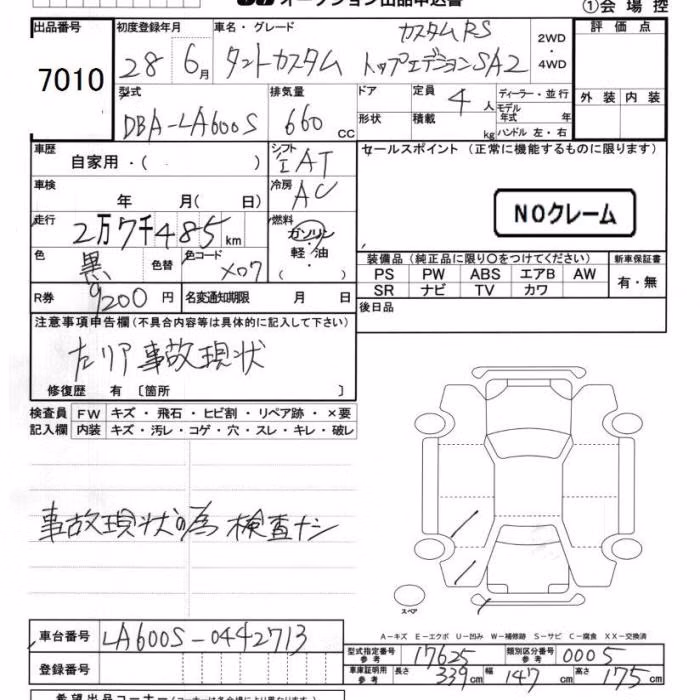 オークション出品申込書
①会場控
出品番号 7010
初度登録年月 28 6月
車名・グレード カスタムRS
タントカスタム トップエディションSA2
2WD・4WD
評価点
外装 内装
型式 DBA-LA600S
排気量 660 CC
ドア
形状
定員 4人
積載 kg
ディーラー・並行
モデル年式 年
ハンドル 左・右
車歴 自家用・( )
シフト IAT
車検 年 月( 日)
冷房 AC
走行 2万7千485km
燃料 ガソリン・軽油・( )
色 黒 色替 色コード X07
R券 9200円 名変通知期限 月 日
セールスポイント (正常に機能するものに限ります)
NOクレーム
装備品 (純正品に限り○をつけてください) 新車保証書
PS PW ABS エアB AW 有・無
SR ナビ TV カワ
後日品
注意事項申告欄(不具合内容等は具体的に記入して下さい)
左リア事故現状
修復歴 有 〔箇所 〕
検査員 FW キズ・飛石・ヒビ割・リペア跡・×要
記入欄 内装 キズ・汚レ・コゲ・穴・スレ・キレ・破レ
事故現状の為検査ナシ
スペア
A-キズ E-エクボ U-凹み W-補修跡 S-サビ C-腐食 XX-交換済
車台番号 LA600S-0442713
登録番号
型式指定番号 参考 17625 類別区分番号 参考 0005
車庫証明用 参考 長さ 339cm 幅 147cm 高さ 175cm
希望出品コーナー(コーナー名は各会場により異なります)